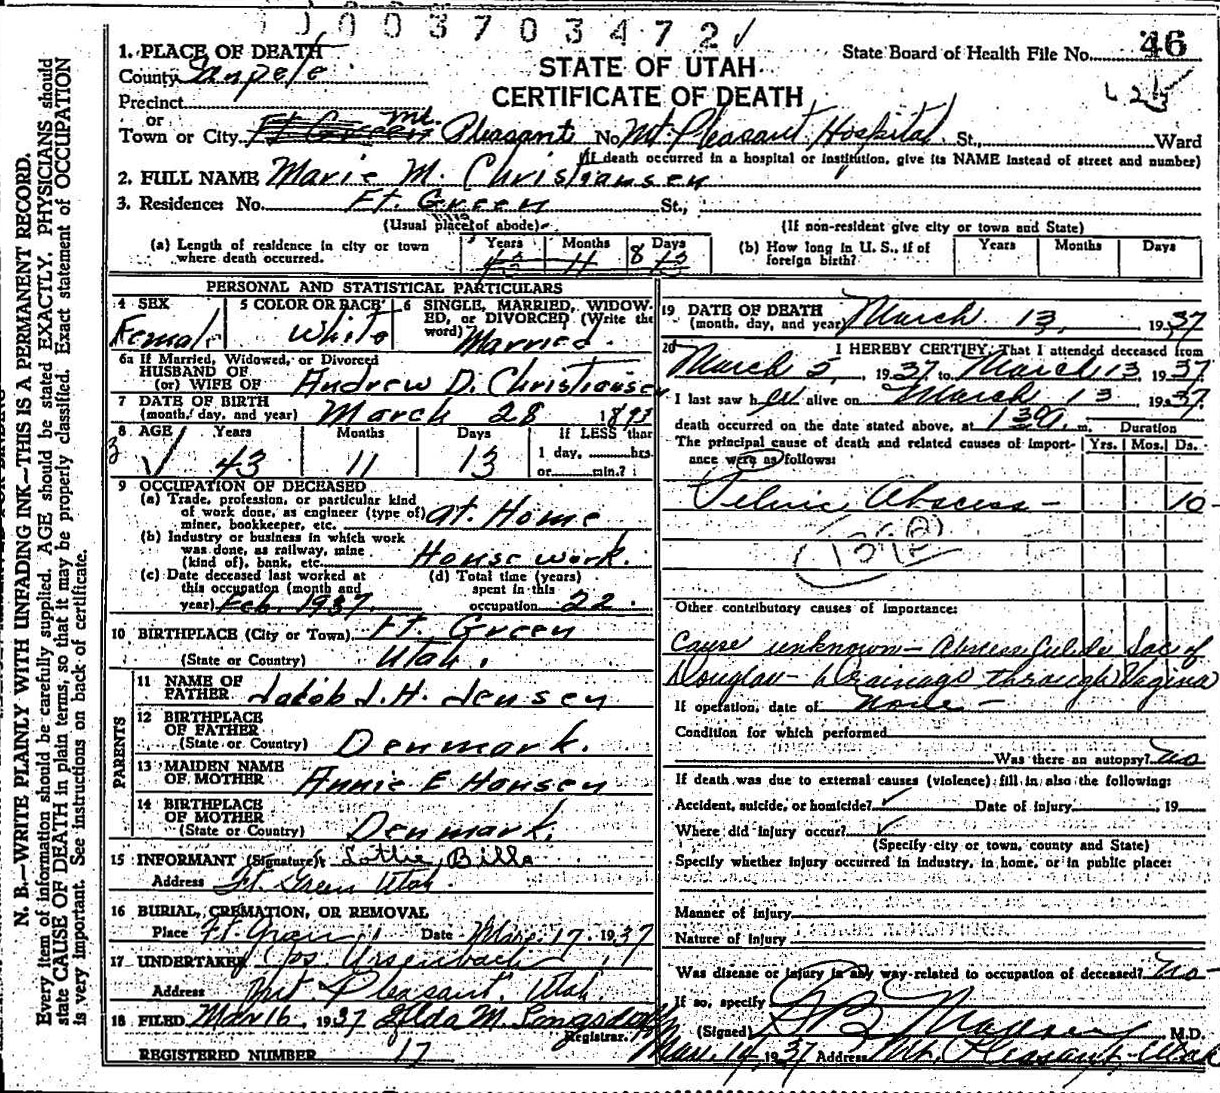 1003703472
1. PLACE OF DEATH
County Sanpete
Precinct
or
Town or City Ft Green Mt. Pleasant No Mt. Pleasant Hospital St., Ward
(If death occurred in a hospital or institution, give its NAME instead of street and number)
STATE OF UTAH
CERTIFICATE OF DEATH
State Board of Health File No. 46
2. FULL NAME Marie M. Christiansen
3. Residence: No. Ft. Green St.,
(Usual place of abode)
(If non-resident give city or town and State)
(a) Length of residence in city or town where death occurred. Years Months 8 Days
(b) How long in U. S., if of foreign birth? Years Months Days
PERSONAL AND STATISTICAL PARTICULARS
4 SEX Female
5 COLOR OR RACE White
6 SINGLE, MARRIED, WIDOWED, or DIVORCED (Write the word) Married
6a If Married, Widowed, or Divorced
HUSBAND OF
(or) WIFE OF Andrew D. Christiansen
7 DATE OF BIRTH
(month, day, and year) March 28 1893
8 AGE Years 43 Months 11 Days 13 If LESS than 1 day, hrs. or min.?
9 OCCUPATION OF DECEASED
(a) Trade, profession, or particular kind of work done, as engineer (type of) miner, bookkeeper, etc. at Home
(b) Industry or business in which work was done, as railway, mine (kind of), bank, etc. House work.
(c) Date deceased last worked at this occupation (month and year) Feb. 1937.
(d) Total time (years) spent in this occupation 22.
10 BIRTHPLACE (City or Town) Ft. Green
(State or Country) Utah.
PARENTS
11 NAME OF FATHER Jacob J. H. Jensen
12 BIRTHPLACE OF FATHER
(State or Country) Denmark.
13 MAIDEN NAME OF MOTHER Annie E Hansen
14 BIRTHPLACE OF MOTHER
(State or Country) Denmark.
15 INFORMANT (Signature) Lottie Bills
Address Ft. Green Utah.
16 BURIAL, CREMATION, OR REMOVAL
Place Ft. Green Date Mar. 17. 1937
17 UNDERTAKER Jos. Ursenbach
Address Mt. Pleasant, Utah.
18 FILED Mar 16, 1937 Zelda M. Longsdorf
Registrar.
REGISTERED NUMBER 17
19 DATE OF DEATH
(month, day, and year) March 13, 1937
20 I HEREBY CERTIFY, That I attended deceased from
March 5, 1937 to March 13 1937
I last saw her alive on March 13 1937
death occurred on the date stated above, at 130 a. m.
Duration
The principal cause of death and related causes of importance were as follows: Yrs. Mos. Ds.
Pelvic Abscess - 10
Other contributory causes of importance:
Cause unknown - Abscess Culde Sac of
Douglau - Drainage through Vagina
If operation, date of None -
Condition for which performed
Was there an autopsy? No
If death was due to external causes (violence) fill in also the following:
Accident, suicide, or homicide? ✓ Date of injury 19
Where did injury occur? ✓
(Specify city or town, county and State)
Specify whether injury occurred in industry, in home, or in public place:
Manner of injury
Nature of injury
Was disease or injury in any way related to occupation of deceased? No -
If so, specify
(Signed) M.D.
Mar. 14, 1937 Address Mt. Pleasant, Utah
N. B.—WRITE PLAINLY WITH UNFADING INK—THIS IS A PERMANENT RECORD.
Every item of information should be carefully supplied. AGE should be stated EXACTLY. PHYSICIANS should
state CAUSE OF DEATH in plain terms, so that it may be properly classified. Exact statement of OCCUPATION
is very important. See instructions on back of certificate.